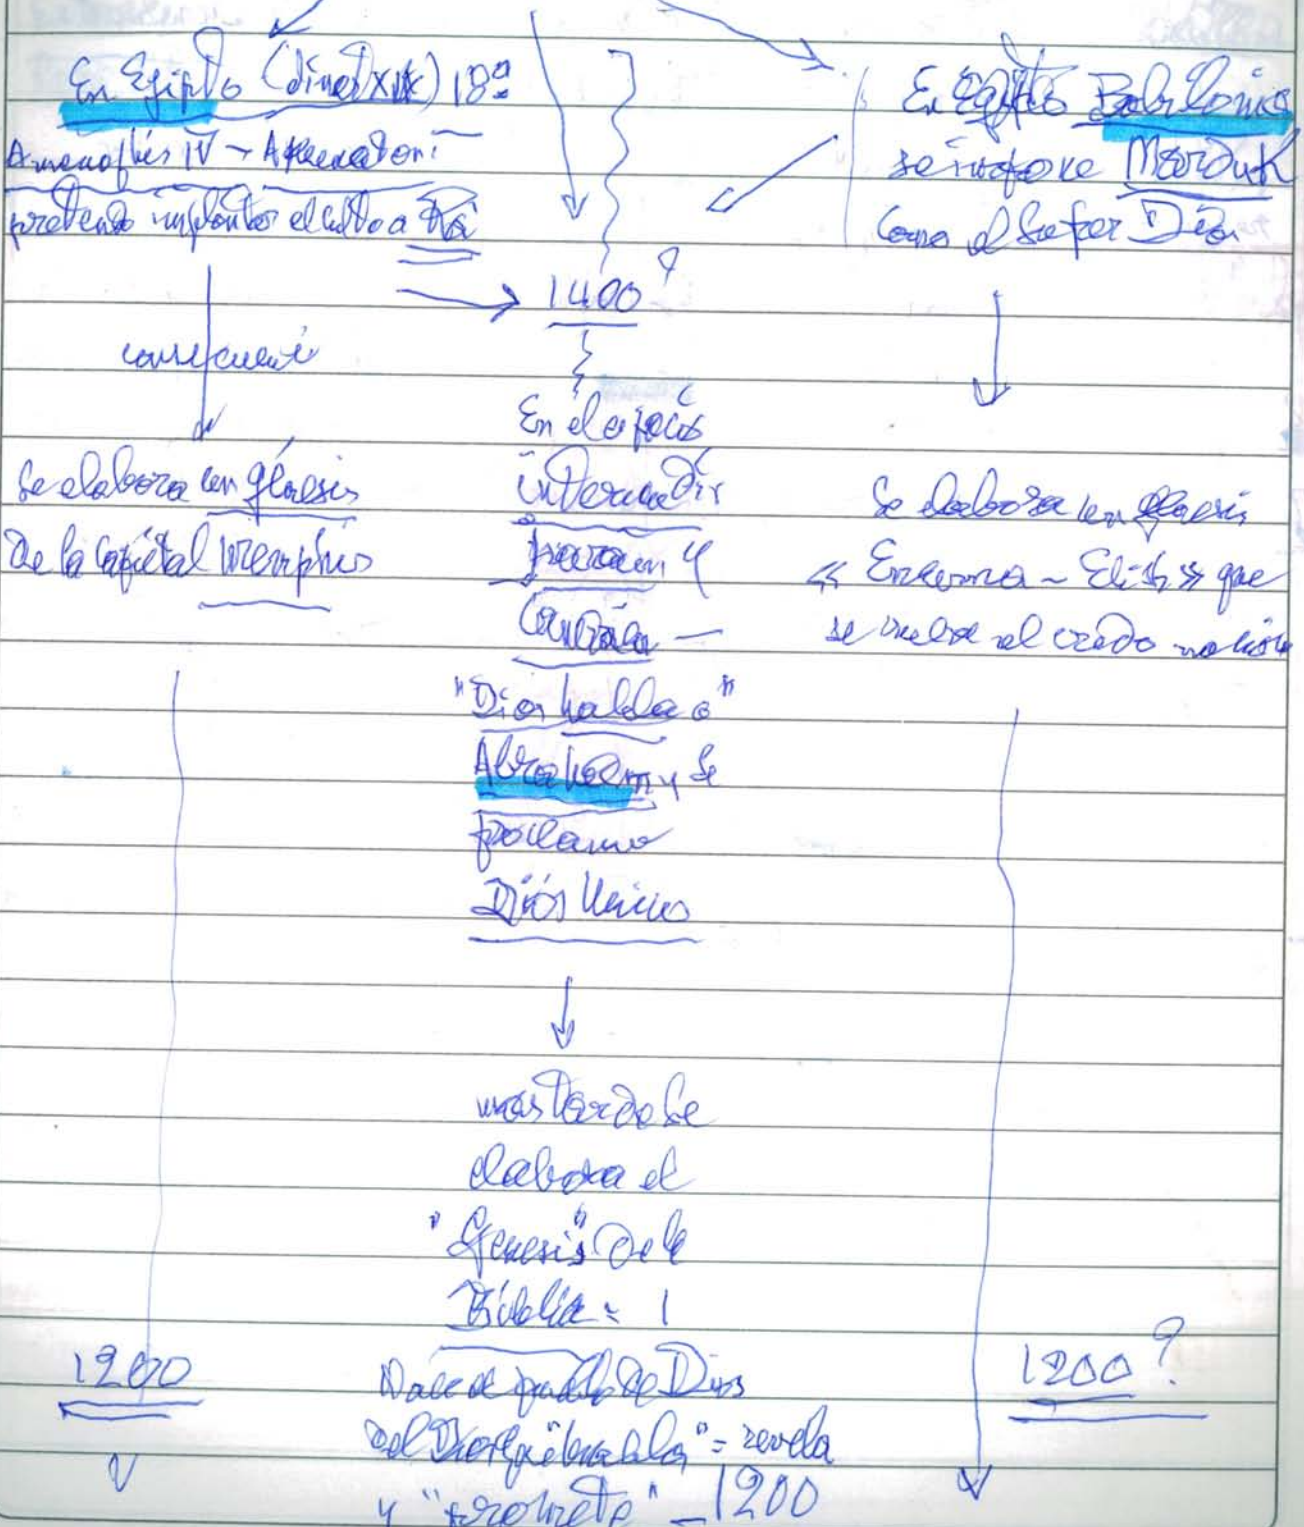 En Egipto (dinast XIX) 18ª
Amenophis IV → Akenaton:
pretende implantar el culto a Ra
consecuencia
Se elabora un génesis
De la Capital Memphis
1200
1400?
En el espacio
intermedio
Canaán —
"Dios habla a"
Abraham y se
proclama
Dios Unico
mas tarde se
elabora el
"Genesis" de la
Biblia = 1
Nace el pueblo de Dios
del Dios que "habla" = revela
y "promete" — 1200
En Egipto Babilonia
se impone Marduk
como el Super Dios
Se elabora un génesis
« Enuma - Elish » que
se vuelve el credo
1200?